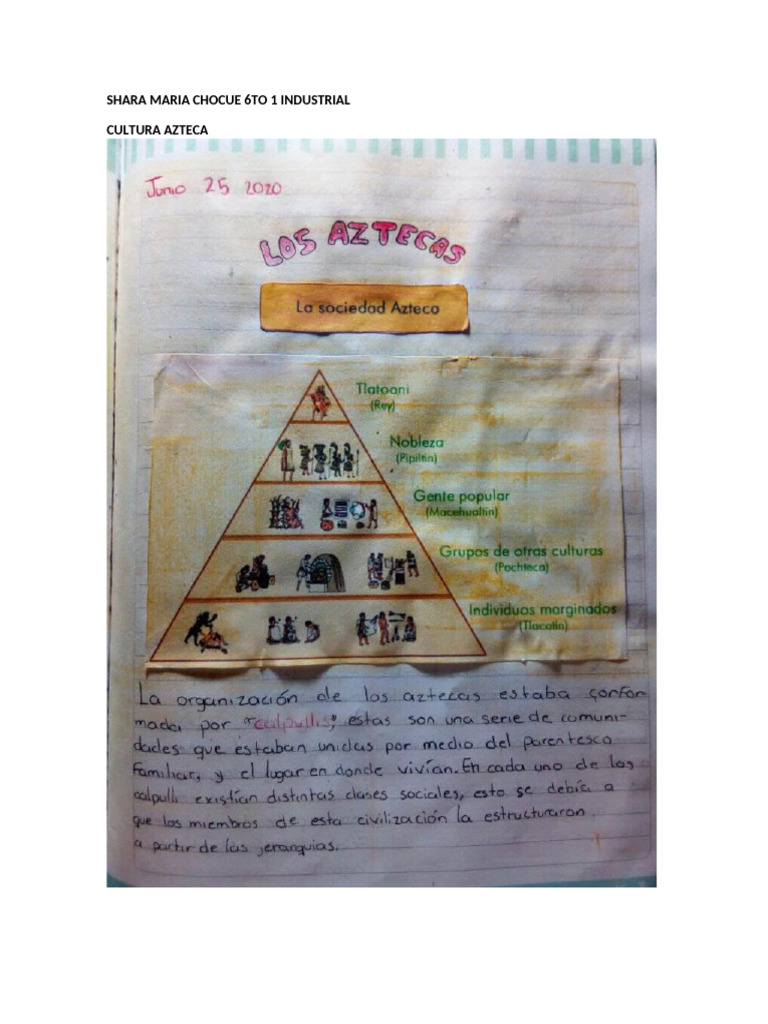 SHARA MARIA CHOCUE 6TO 1 INDUSTRIAL
CULTURA AZTECA
Junio 25 2020
LOS AZTECAS
La sociedad Azteca
Tlatoani
(Rey)
Nobleza
(Pipiltin)
Gente popular
(Macehualtin)
Grupos de otras culturas
(Pochteca)
Individuos marginados
(Tlacotin)
La organización de los aztecas estaba confor
mada por "calpullis", estas son una serie de comuni-
dades que estaban unidas por medio del parentesco
familiar, y el lugar en donde vivían. En cada uno de los
calpulli existían distintas clases sociales, esto se debía a
que los miembros de esta civilización la estructuraron
a partir de las jerarquias.